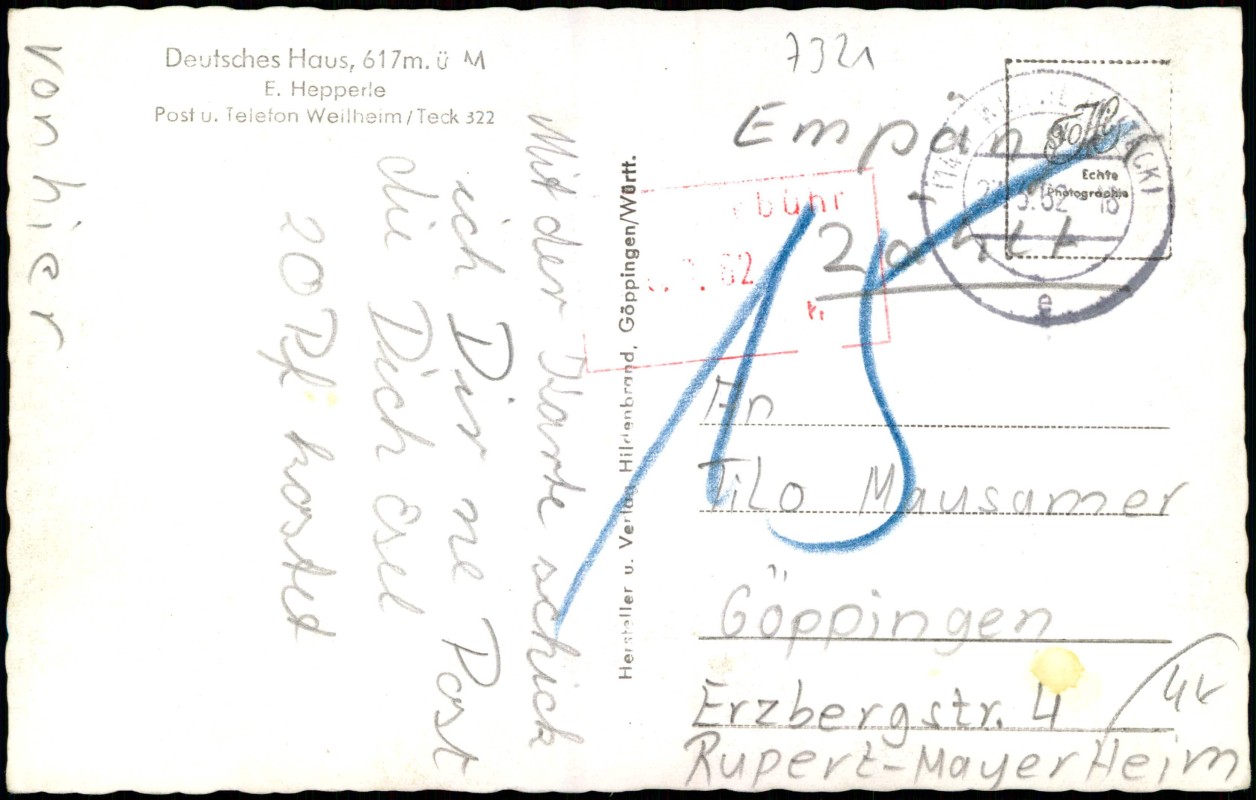 Deutsches Haus, 617m. ü M
E. Hepperle
Post u. Telefon Weilheim/Teck 322
von hier
Mit der Karte schick
ich Dir ne Post
die Dich Esel
20 Pf. kostet
Hersteller u. Verlag Hildenbrand, Göppingen/Württ.
7321
Empän
Zahlt
Echte
Photographie
62 18
e
bühr
62
15
An
Tilo Mausamer
Göppingen
Erzbergstr. 4
Rupert-Mayer Heim